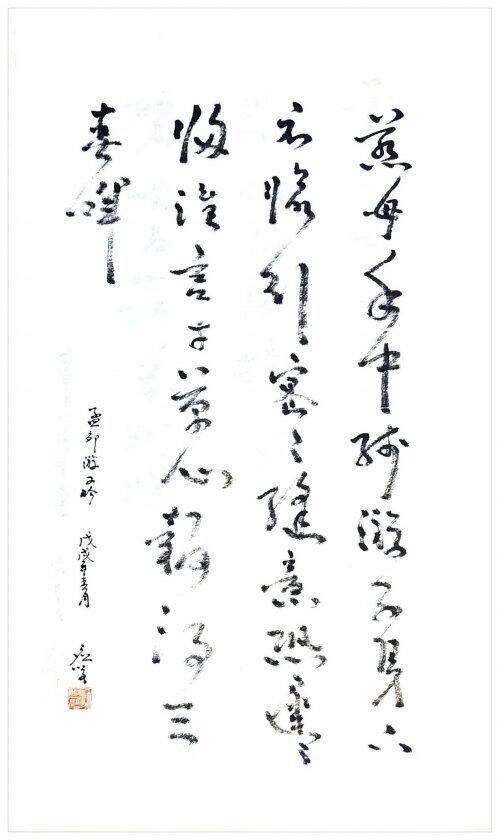 慈母手中线游子身上
衣臨行密〻縫意恐遲〻
歸誰言寸草心報得三
春暉
孟郊游子吟 戊戌年